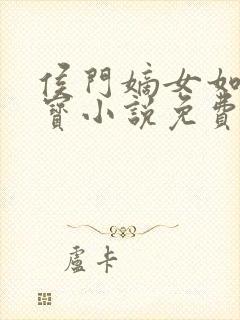 侯門嫡女如
寶小說免費
盧卡